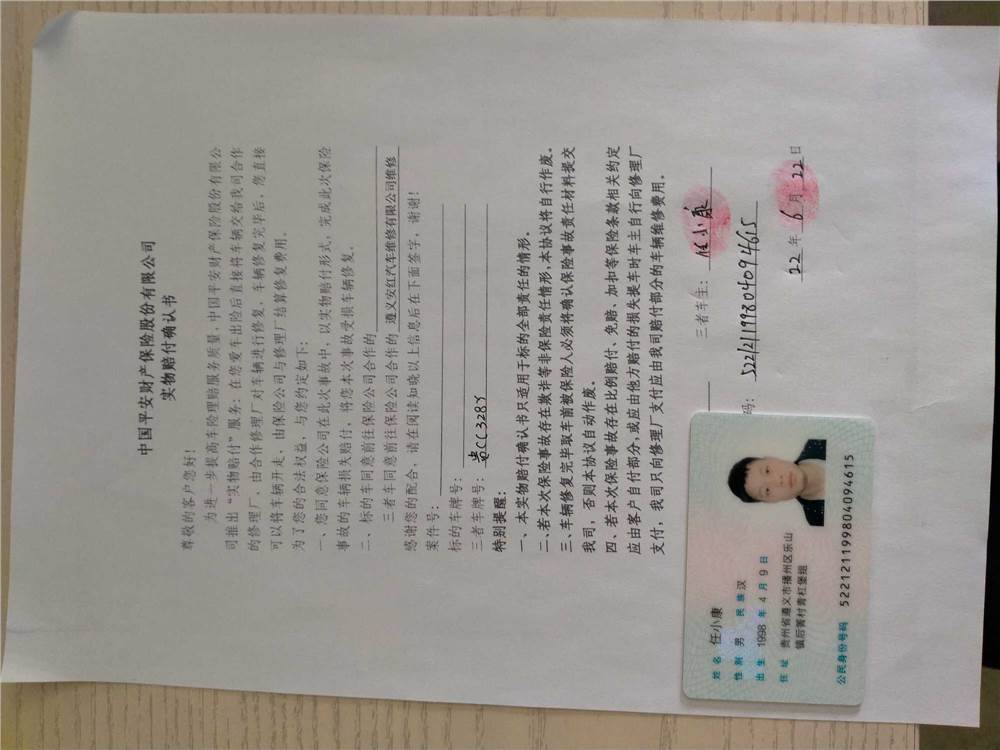 中国平安财产保险股份有限公司
实物赔付确认书
尊敬的客户您好！
为进一步提高车险理赔服务质量，中国平安财产保险股份有限公
司推出“实物赔付”服务：在您爱车出险后直接将车辆交给我司合作
的修理厂，由合作修理厂对车辆进行修复，车辆修复完毕后，您直接
可以将车辆开走，由保险公司与修理厂结算修复费用。
为了您的合法权益，与您约定如下：
一、您同意保险公司在此次事故中，以实物赔付形式，完成此次保险
事故的车辆损失赔付，将您本次事故受损车辆修复。
二、标的车同意前往保险公司合作的
三者车同意前往保险公司合作的 遵义安红汽车维修有限公司维修
感谢您的配合，请在阅读知晓以上信息后在下面签字，谢谢！
案件号：
标的车牌号：
三者车牌号： 贵CC328Y
特别提醒：
一、本实物赔付确认书只适用于标的全部责任的情形。
二、若本次保险事故存在欺诈等非保险责任情形，本协议将自行作废。
三、车辆修复完毕取车前被保险人必须将确认保险事故责任材料提交
我司，否则本协议自动作废。
四、若本次保险事故存在比例赔付、免赔、加扣等保险条款相关约定
应由客户自付部分，或应由他方赔付的损失提车时车主自行向修理厂
支付，我司只向修理厂支付应由我司赔付部分的车辆维修费用。
三者车主： 任小康
码： 522121199804094615
22 年 6 月 22 日
姓名 任小康
性别 男 民族 汉
出生 1998 年 4 月 9 日
住址 贵州省遵义市播州区乐山
镇后箐村青杠堡组
公民身份号码 522121199804094615